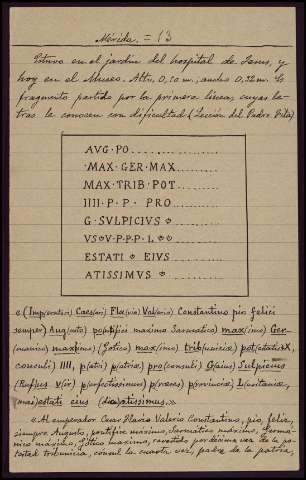 Mérida. = 13
Estuvo en el jardin del hospital de Jesus, y
hoy en el Museo. Alto, 0,50 m.; ancho 0,32 m. Es
fragmento partido por la primera linea, cuyas le-
tras se conocen con dificultad (Leccion del Padre Fita)
AVG·PO
MAX·GER·MAX
MAX·TRIB·POT
IIII·P·P·PRO
G·SVLPICIVS
VS V·P·P·P·L
ESTATI EIVS
ATISSIMVS
«(Imp(eratori) Caes(ari) Fla(vio) Val(erio) Constantino pio felici
semper) Aug(usto) po(ntifici maximo Sarmatico) max(imo) Ger-
(manico) max(imo) (Gotico) max(imo) trib(unicia) pot(estatis X,
consuli) IIII, p(atri) p(atriae) pro(consuli) G(aius) Sulpicius
(Ruf)us v(ir) p(erfectissimus) p(raeses) p(rovinciae) L(usitaniae,
mai)estati eius (dic)atissimus.»
«Al emperador Cesar Flavio Valerio Constantino, pio, feliz,
siempre Augusto, pontifice máximo, Sarmático máximo, Germá-
nico máximo, Gótico maximo, revestido por décima vez de la po-
testad tribunicia, consul la cuarta vez, padre de la patria,